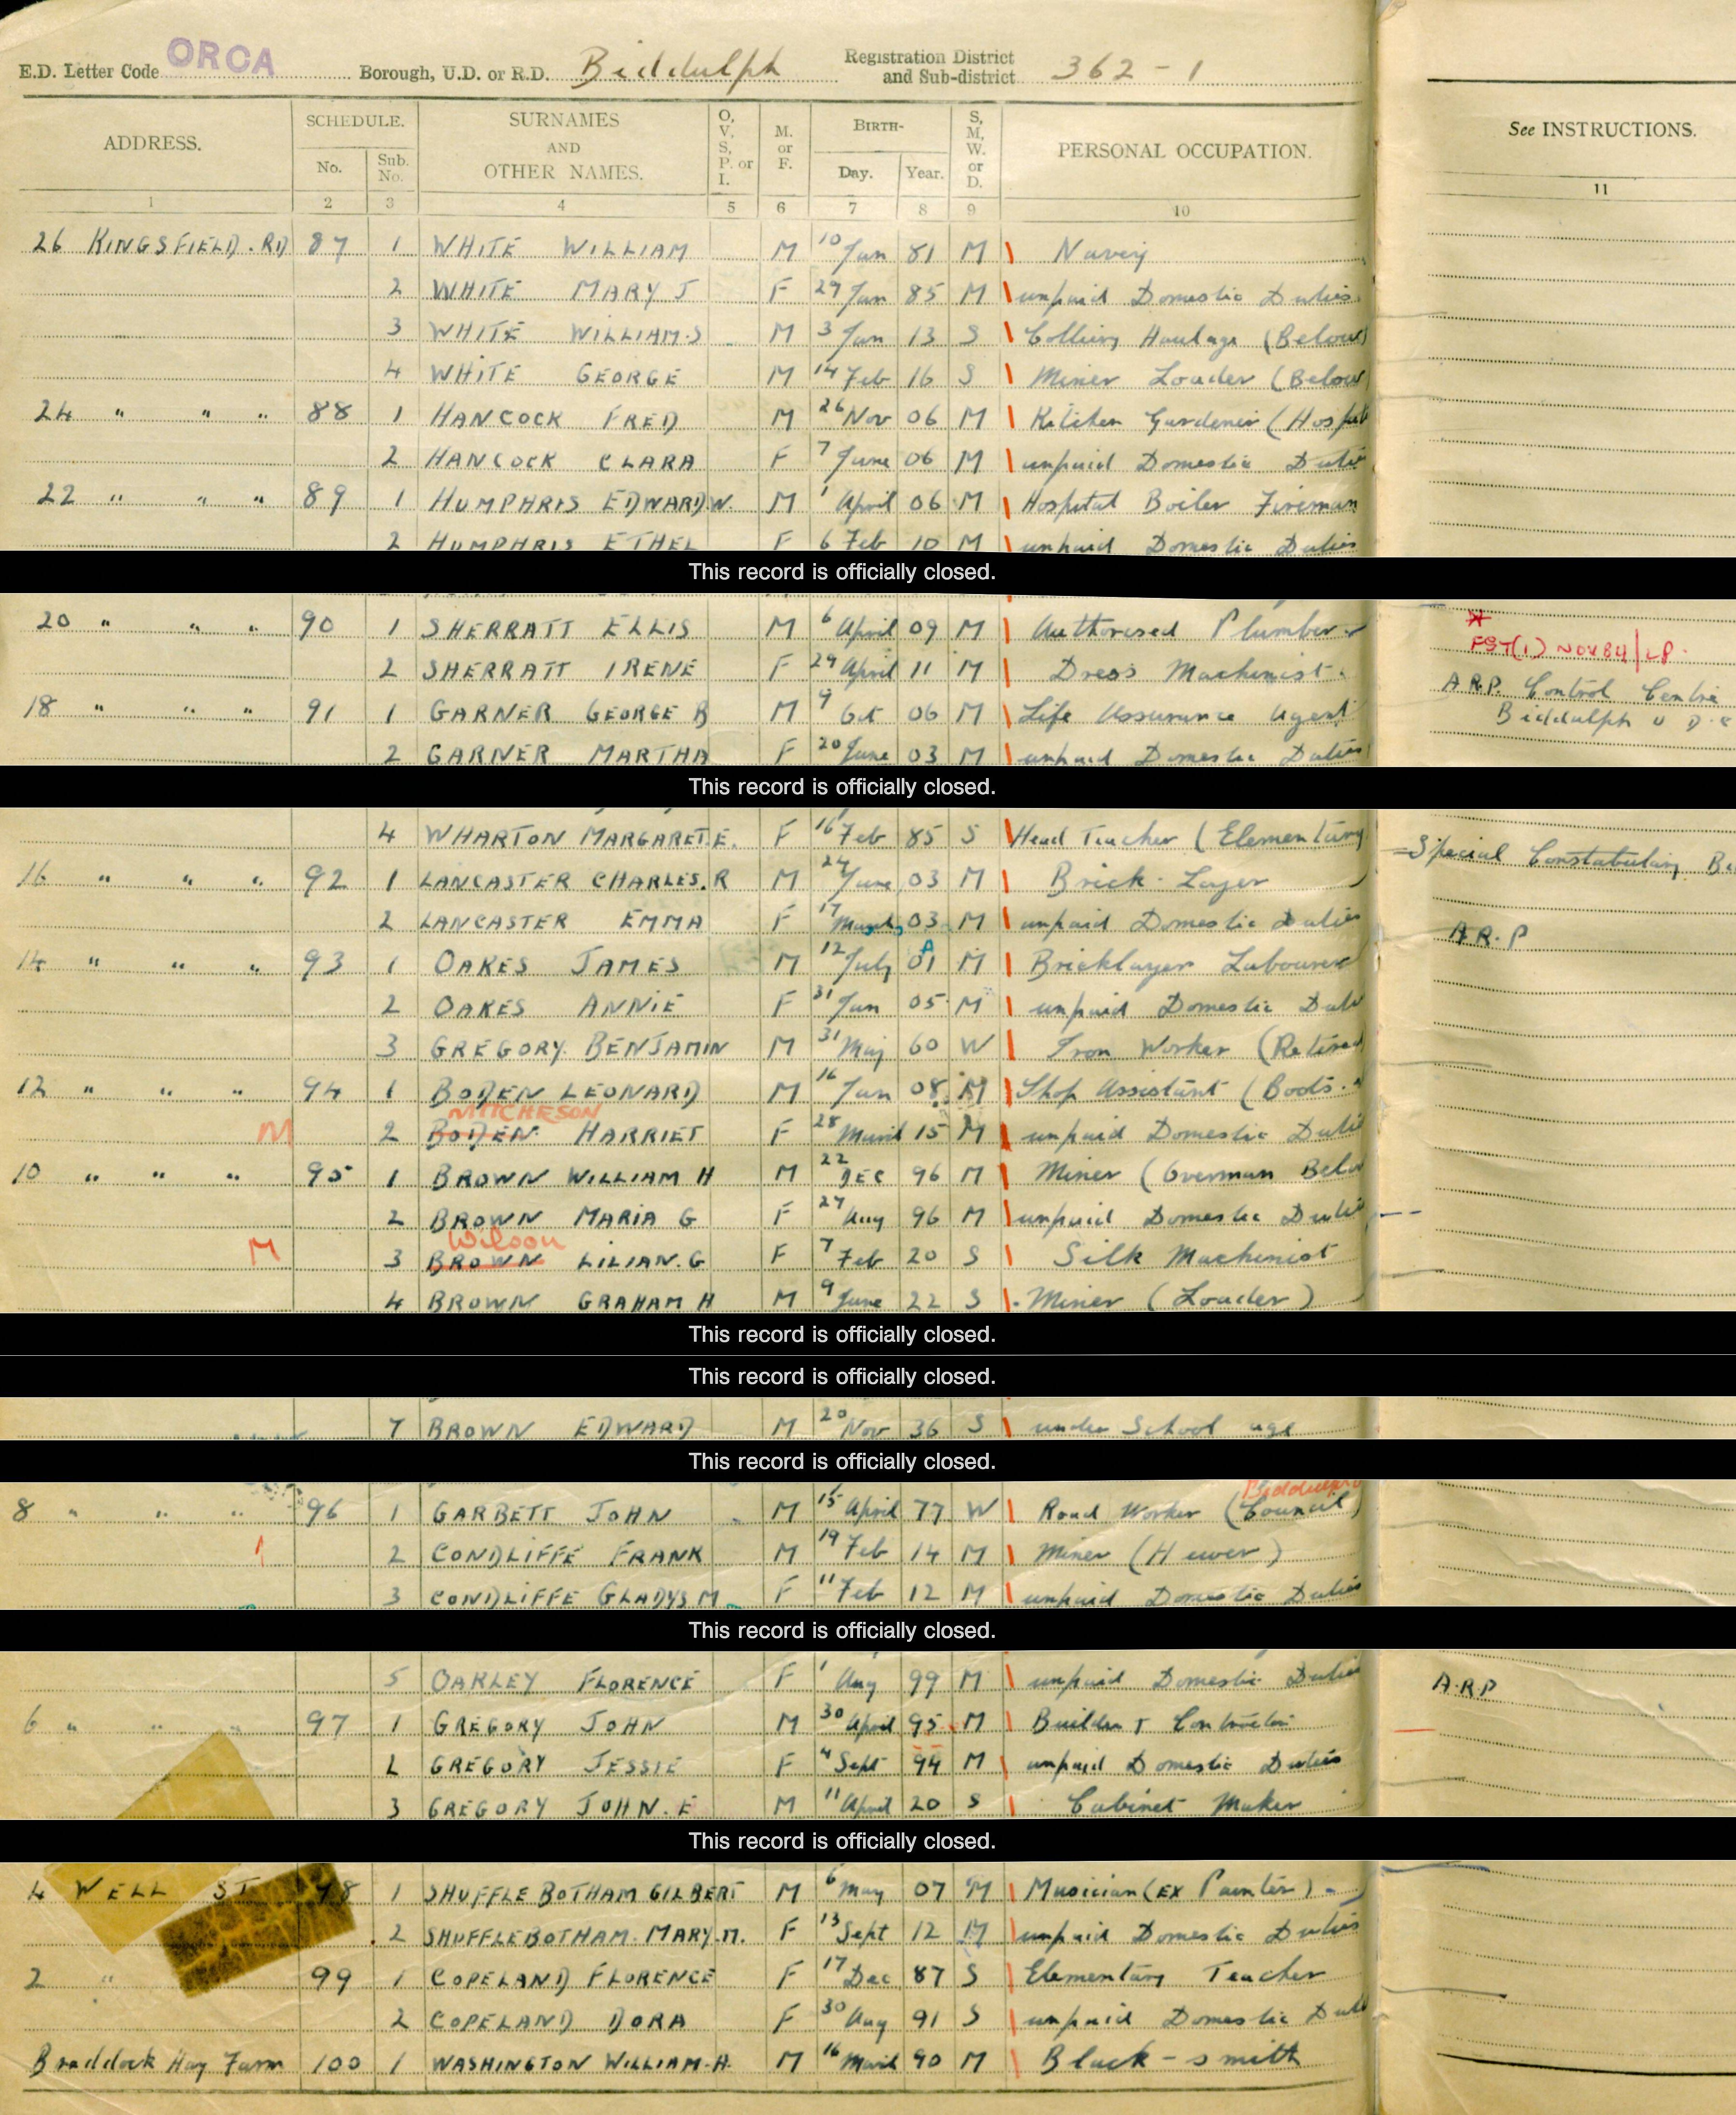 E.D. Letter Code ORCA Borough, U.D. or R.D. Biddulph Registration District and Sub-district 362-1
ADDRESS. SCHEDULE. No. Sub. No. SURNAMES AND OTHER NAMES. O, V, S, P. or I. M. or F. BIRTH- Day. Year. S, M, W. or D. PERSONAL OCCUPATION. See INSTRUCTIONS.
1 2 3 4 5 6 7 8 9 10 11
26 KINGSFIELD. RD 87 1 WHITE WILLIAM M 10 Jan 81 M Navey
2 WHITE MARY J F 29 Jan 85 M unpaid Domestic Duties
3 WHITE WILLIAM.S M 3 Jan 13 S Colliery Haulage (Below)
4 WHITE GEORGE M 14 Feb 16 S Miner Loader (Below
24 " " " 88 1 HANCOCK FRED M 26 Nov 06 M Kitchen Gardener (Hospit
2 HANCOCK CLARA F 7 June 06 M unpaid Domestic Dutie
22 " " " 89 1 HUMPHRIS EDWARD.W. M 1 April 06 M Hospital Boiler Fireman
2 HUMPHRIS ETHEL F 6 Feb 10 M unpaid Domestic Duties
This record is officially closed.
20 " " " 90 1 SHERRATT ELLIS M 6 April 09 M Authorised Plumber
FST(1) NOV 84/LP.
2 SHERRATT IRENE F 29 April 11 M Dress Machinist
A.R.P. Control Centre
18 " " " 91 1 GARNER GEORGE B M 9 Oct 06 M Life Assurance Agent Biddulph U D C
2 GARNER MARTHA F 20 June 03 M unpaid Domestic Duties
This record is officially closed.
4 WHARTON MARGARET.E. F 16 Feb 85 S Head Teacher (Elementary Special Constabulary
16 " " " 92 1 LANCASTER CHARLES.R M 24 June 03 M Brick-Layer
2 LANCASTER EMMA F 17 March 03 M unpaid Domestic Duties A.R.P
14 " " " 93 1 OAKES JAMES M 12 July 01 M Bricklayer Labourer
2 OAKES ANNIE F 31 Jan 05 M unpaid Domestic Duti
3 GREGORY. BENJAMIN M 31 May 60 W Iron Worker (Retired
12 " " " 94 1 BODEN LEONARD M 16 Jan 08 M Shop Assistant (Boots.
MITCHESON
M 2 BODEN HARRIET F 28 March 15 M unpaid Domestic Dutie
10 " " " 95 1 BROWN WILLIAM H M 22 DEC 96 M Miner (Overman Below
2 BROWN MARIA G F 27 Aug 96 M unpaid Domestic Dutie
Wilson
M 3 BROWN LILIAN.G F 7 Feb 20 S Silk Machinist
4 BROWN GRAHAM H M 9 June 22 S Miner (Loader)
This record is officially closed.
This record is officially closed.
7 BROWN EDWARD M 20 Nov 36 S under School age
This record is officially closed.
Biddulph
8 " " " 96 1 GARBETT JOHN M 15 April 77 W Road Worker (Council)
2 CONDLIFFE FRANK M 19 Feb 14 M Miner (Hewer)
3 CONDLIFFE GLADYS M F 11 Feb 12 M unpaid Domestic Duties
This record is officially closed.
5 OAKLEY FLORENCE F 1 Aug 99 M unpaid Domestic Duties A.R.P
6 " " " 97 1 GREGORY JOHN M 30 April 95 M Builder & Contractor
2 GREGORY JESSIE F 4 Sept 94 M unpaid Domestic Duties
3 GREGORY JOHN. E M 11 April 20 S Cabinet Maker
This record is officially closed.
4 WELL ST 98 1 SHUFFLEBOTHAM GILBERT M 6 May 07 M Musician (EX Painter)
2 SHUFFLEBOTHAM. MARY.M. F 13 Sept 12 M unpaid Domestic Duties
2 " 99 1 COPELAND FLORENCE F 17 Dec 87 S Elementary Teacher
2 COPELAND DORA F 30 Aug 91 S unpaid Domestic Duti
Braddock Hay Farm 100 1 WASHINGTON WILLIAM.H. M 16 March 90 M Black-smith